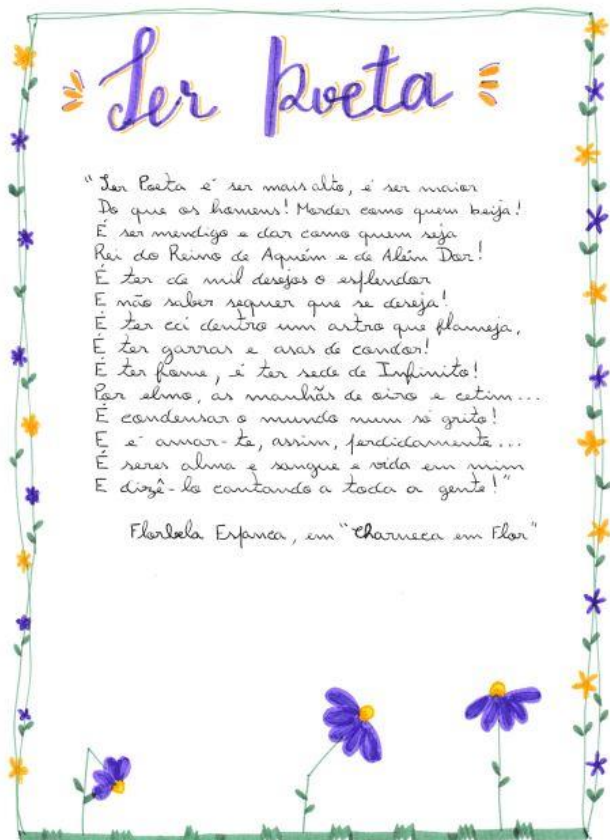 Ser Poeta
"Ser Poeta é ser mais alto, é ser maior
Do que os homens! Morder como quem beija!
É ser mendigo e dar como quem seja
Rei do Reino de Aquém e de Além Dor!
É ter de mil desejos o esplendor
E não saber sequer que se deseja!
É ter cá dentro um astro que flameja,
É ter garras e asas de condor!
É ter fome, é ter sede de Infinito!
Por elmo, as manhãs de oiro e cetim...
É condensar o mundo num só grito!
E é amar-te, assim, perdidamente...
É seres alma e sangue e vida em mim
E dizê-lo cantando a toda a gente!"
Florbela Espanca, em "Charneca em Flor"